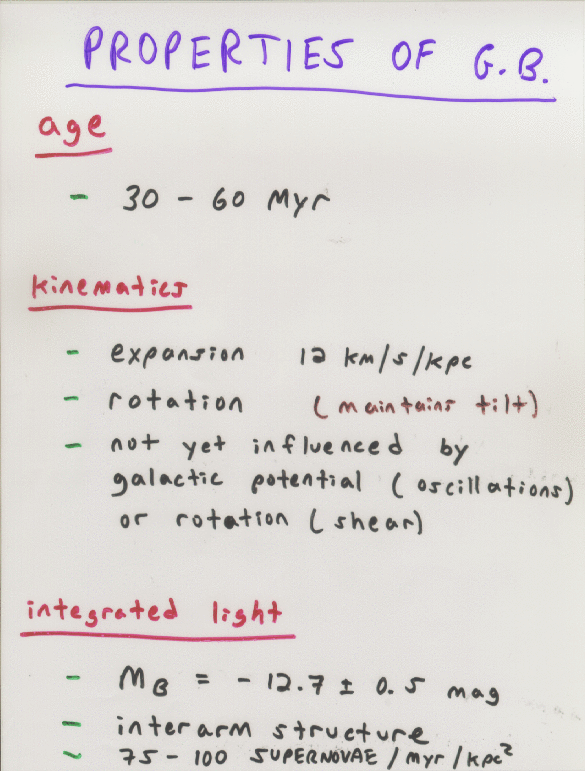 PROPERTIES OF G.B.
age
- 30 - 60 Myr
kinematics
- expansion 12 km/s/kpc
- rotation (maintains tilt)
- not yet influenced by
galactic potential (oscillations)
or rotation (shear)
integrated light
- M_B = -12.7 ± 0.5 mag
- interarm structure
~ 75-100 SUPERNOVAE/Myr/kpc²